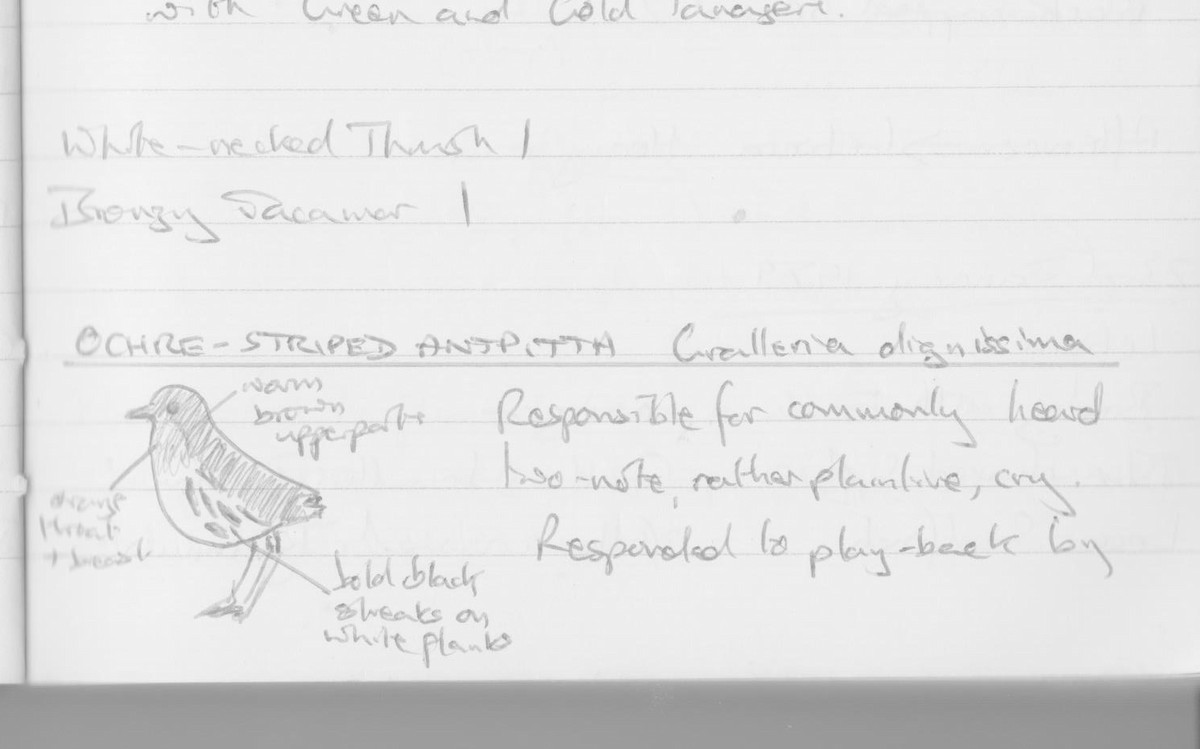 with Green and Gold Tanagers.
White-necked Thrush 1
Bronzy Jacamar 1
OCHRE-STRIPED ANTPITTA Grallaria dignissima
warm
brown
upperparts
orange
throat
+ breast
bold black
streaks on
white flanks
Responsible for commonly heard
two-note, rather plaintive, cry.
Responded to play-back by